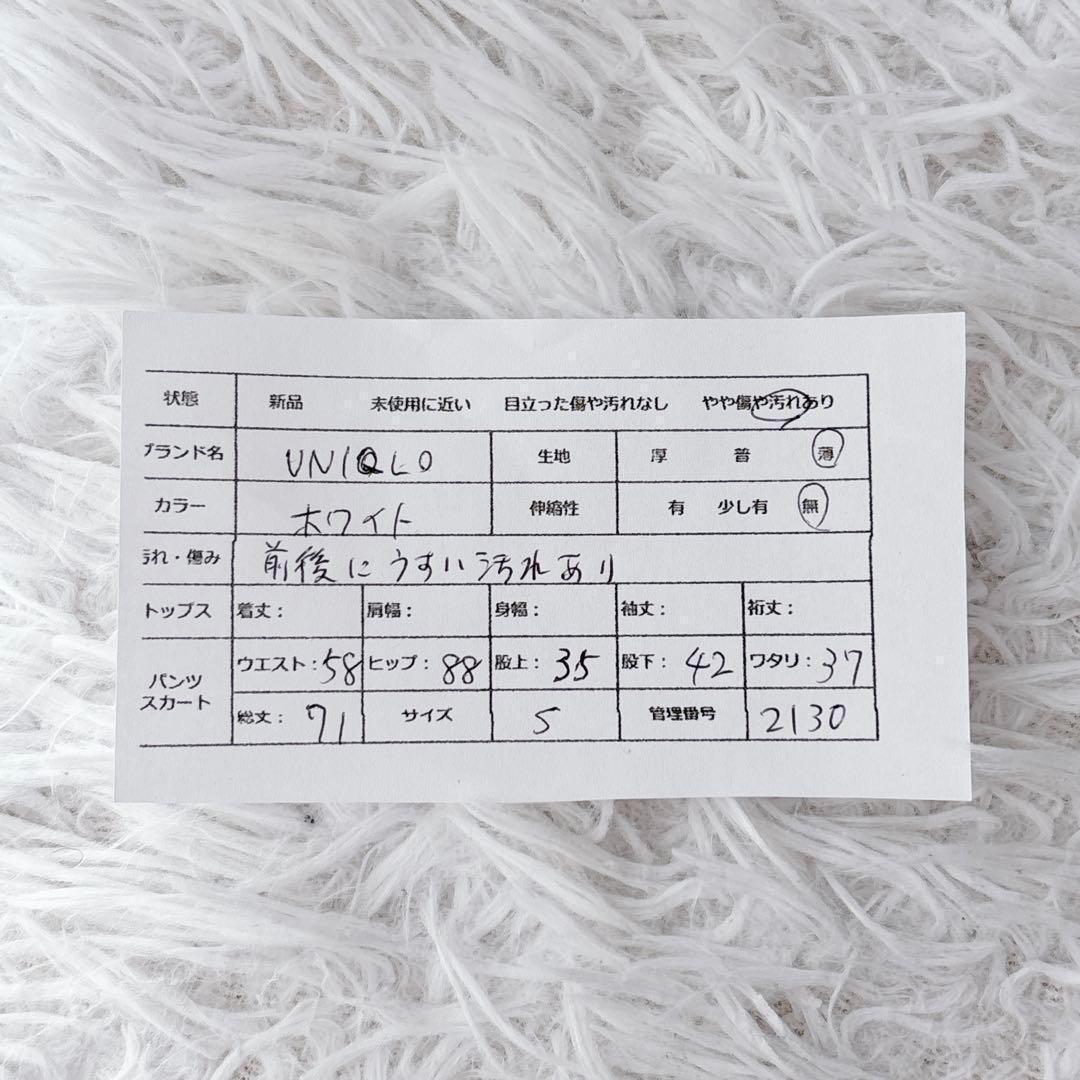 状態 新品 未使用に近い 目立った傷や汚れなし やや傷や汚れあり
ブランド名 UNIQLO 生地 厚 普 薄
カラー ホワイト 伸縮性 有 少し有 無
汚れ・傷み 前後にうすい汚れあり
トップス 着丈: 肩幅: 身幅: 袖丈: 裄丈:
パンツ スカート ウエスト:58 ヒップ:88 股上:35 股下:42 ワタリ:37
総丈:71 サイズ S 管理番号 2130